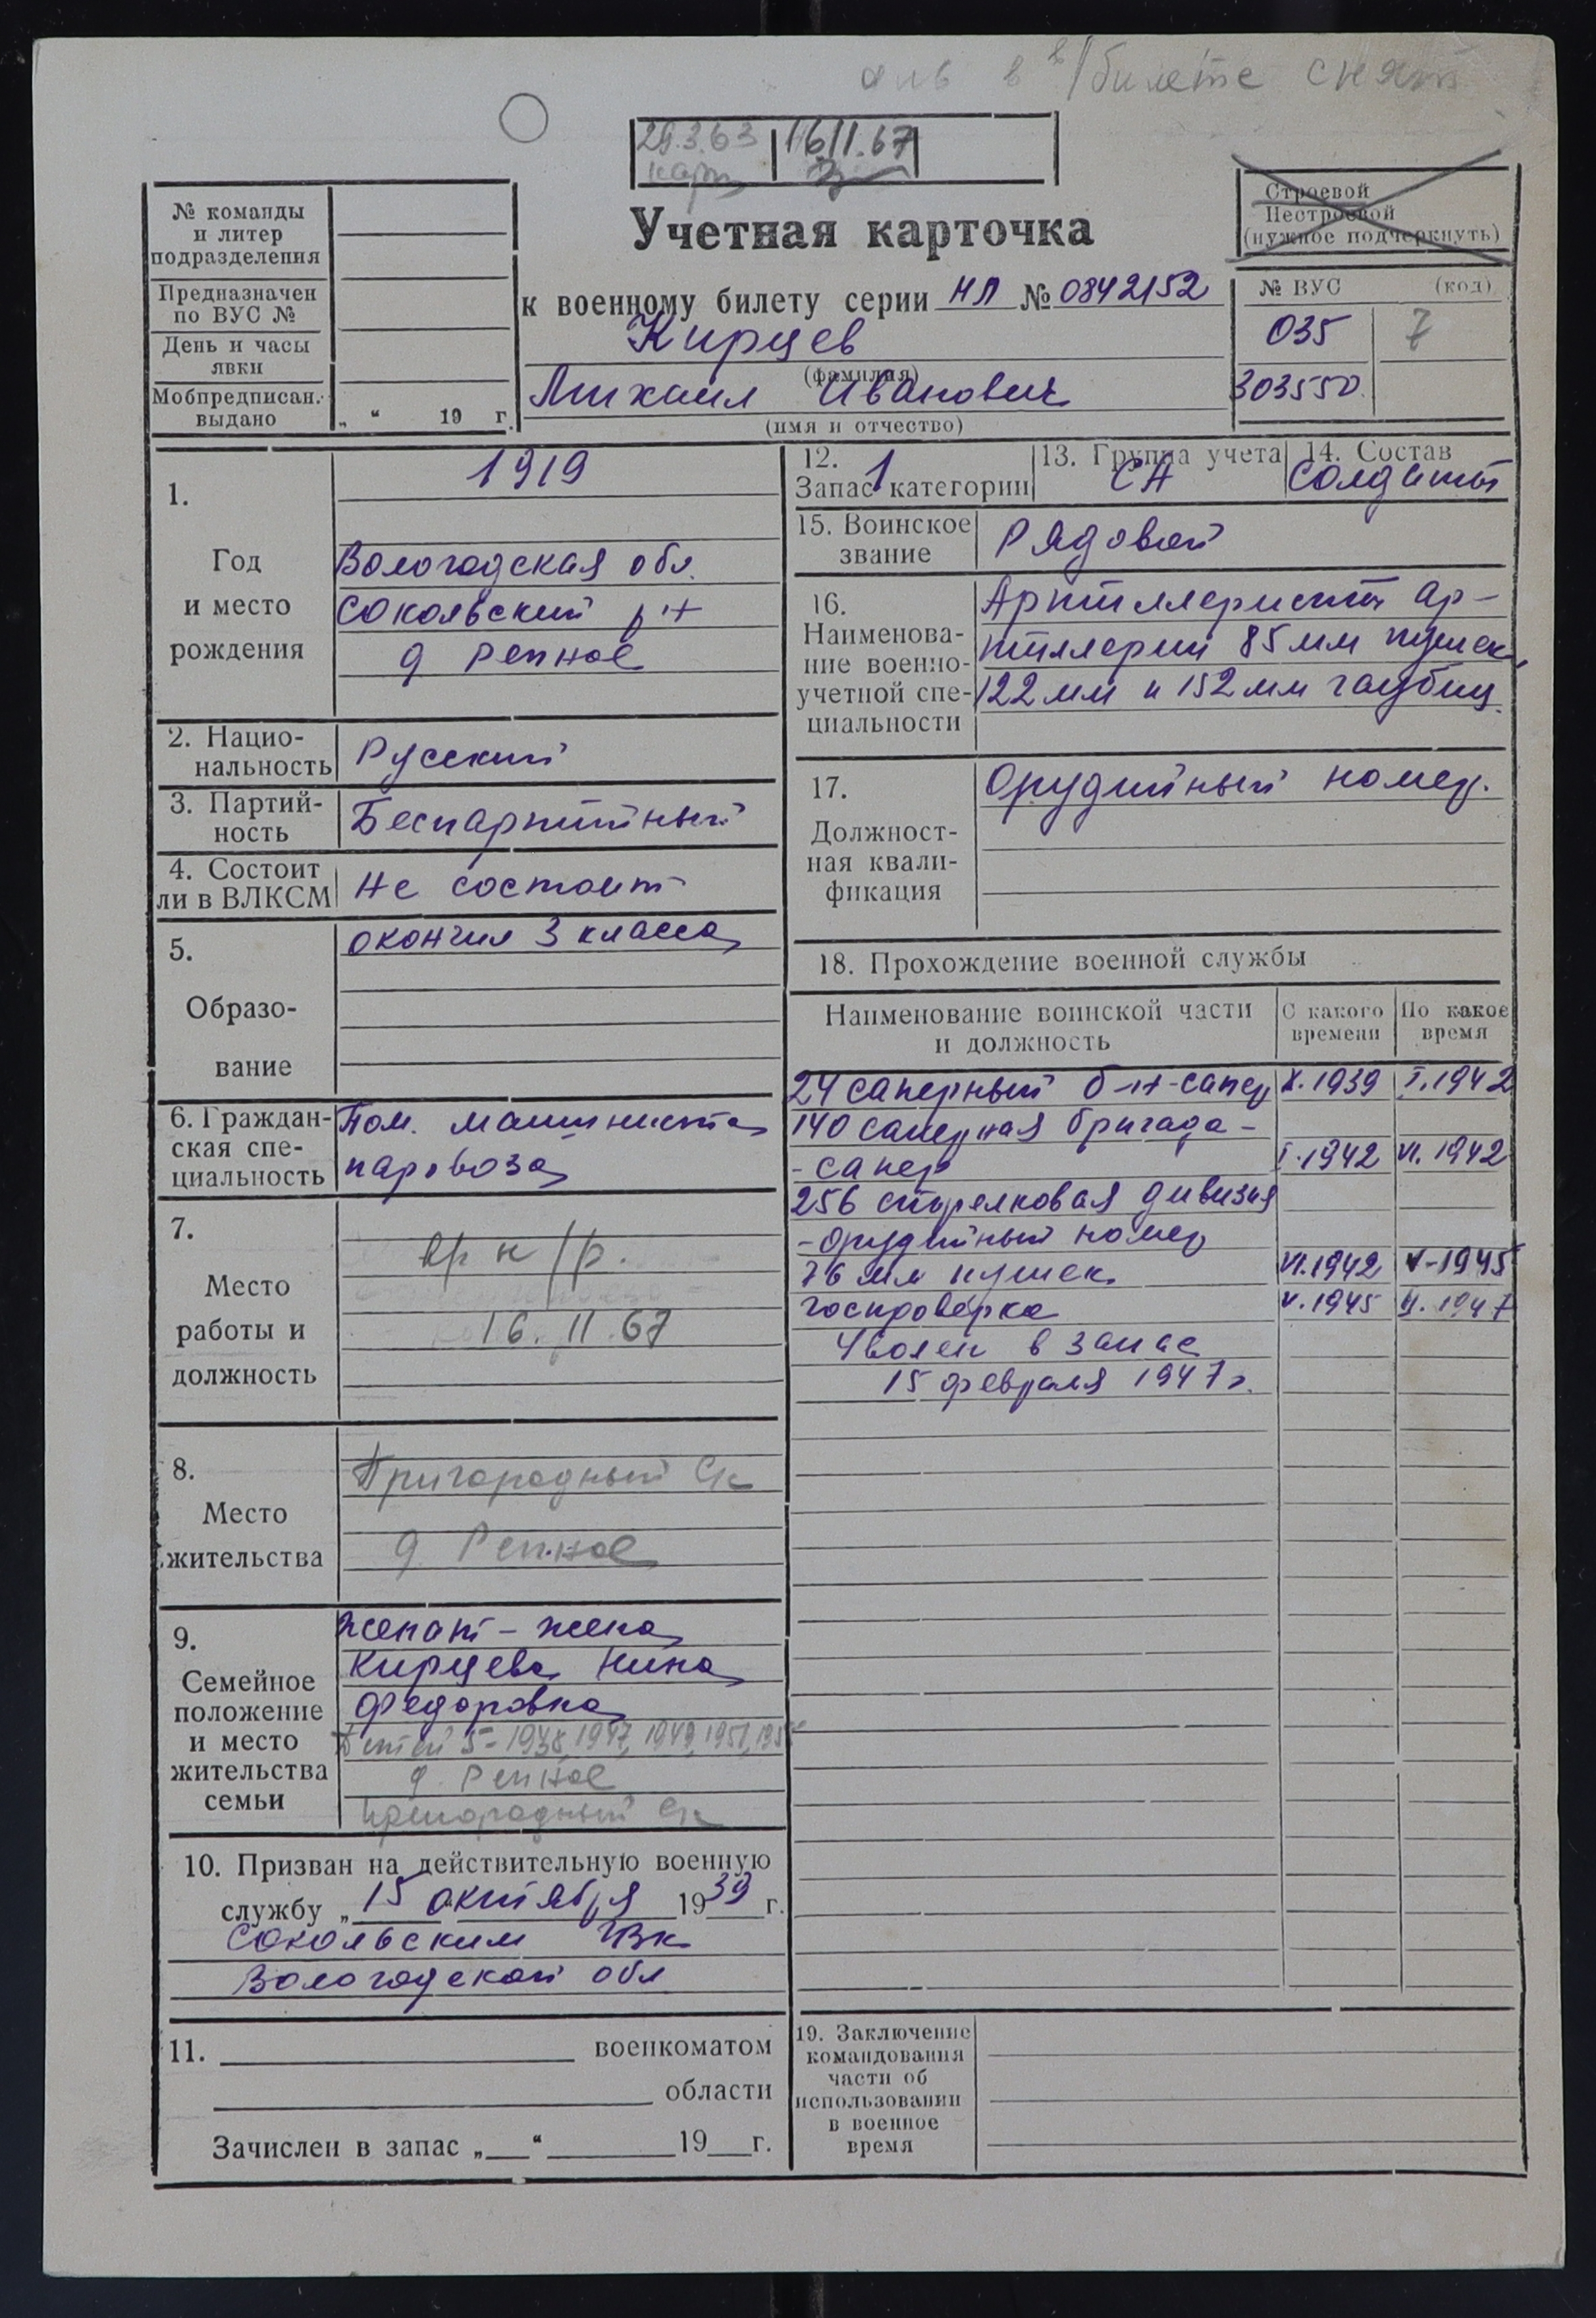 в в/билете снят
29.3.63 16.11.67
№ команды
и литер
подразделения
Предназначен
по ВУС №
День и часы
явки
Мобпредписан.
выдано „ “ 19 г.
Учетная карточка
к военному билету серии НЛ № 0842152
Кирцев
(фамилия)
Михаил Иванович
(имя и отчество)
Строевой
Нестроевой
(нужное подчеркнуть)
№ ВУС (код)
035 7
303550
1. Год и место рождения
1919
Вологодская обл.
Сокольский р-н
д Репное
2. Нацио-
нальность Русский
3. Партий-
ность Беспартийный
4. Состоит
ли в ВЛКСМ Не состоит
5. Образо-
вание
окончил 3 класса
6. Граждан-
ская спе-
циальность
Пом. машиниста
паровоза
7.
Место
работы и
должность
16.11.67
8.
Место
жительства
Пригородный С/с
д. Репное
9.
Семейное
положение
и место
жительства
семьи
женат - жена
Кирцева Нина
Федоровна
Детей 5 - 1938, 1947, 1949, 1951,
д. Репное
Пригородный С/с
10. Призван на действительную военную
службу „15 октября 1939 г.
Сокольским РВК
Вологодской обл
11. военкоматом
области
Зачислен в запас „ “ 19 г.
12.
Запас категории 1
13. Группа учета
СА
14. Состав
Солдаты
15. Воинское
звание Рядовой
16.
Наименова-
ние военно-
учетной спе-
циальности
Артиллеристы ар-
тиллерии 85 мм пушек,
122 мм и 152 мм гаубиц.
17.
Должност-
ная квали-
фикация
Орудийный номер.
18. Прохождение военной службы
Наименование воинской части
и должность
С какого
времени
По какое
время
24 саперный б-н-сапер X.1939 I.1942
140 саперная бригада -
- сапер I.1942 VI.1942
256 стрелковая дивизия
- орудийный номер
76 мм пушек VI.1942 V-1945
госпроверка V.1945 II.1947
Уволен в запас
15 февраля 1947 г.
19. Заключение
командования
части об
использовании
в военное
время